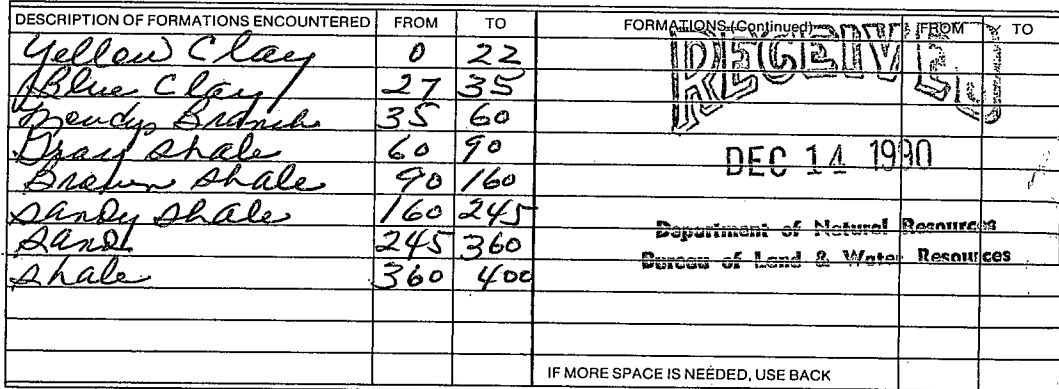 DESCRIPTION OF FORMATIONS ENCOUNTERED FROM TO FORMATIONS (Continued) FROM TO
Yellow Clay 0 22
Blue Clay 27 35
Moodys Branch 35 60
Gray Shale 60 90
Brown Shale 90 160
Sandy Shale 160 245
Sand 245 360
Shale 360 400
RECEIVED
DEC 14 1990
Department of Natural Resources
Bureau of Land & Water Resources
IF MORE SPACE IS NEEDED, USE BACK